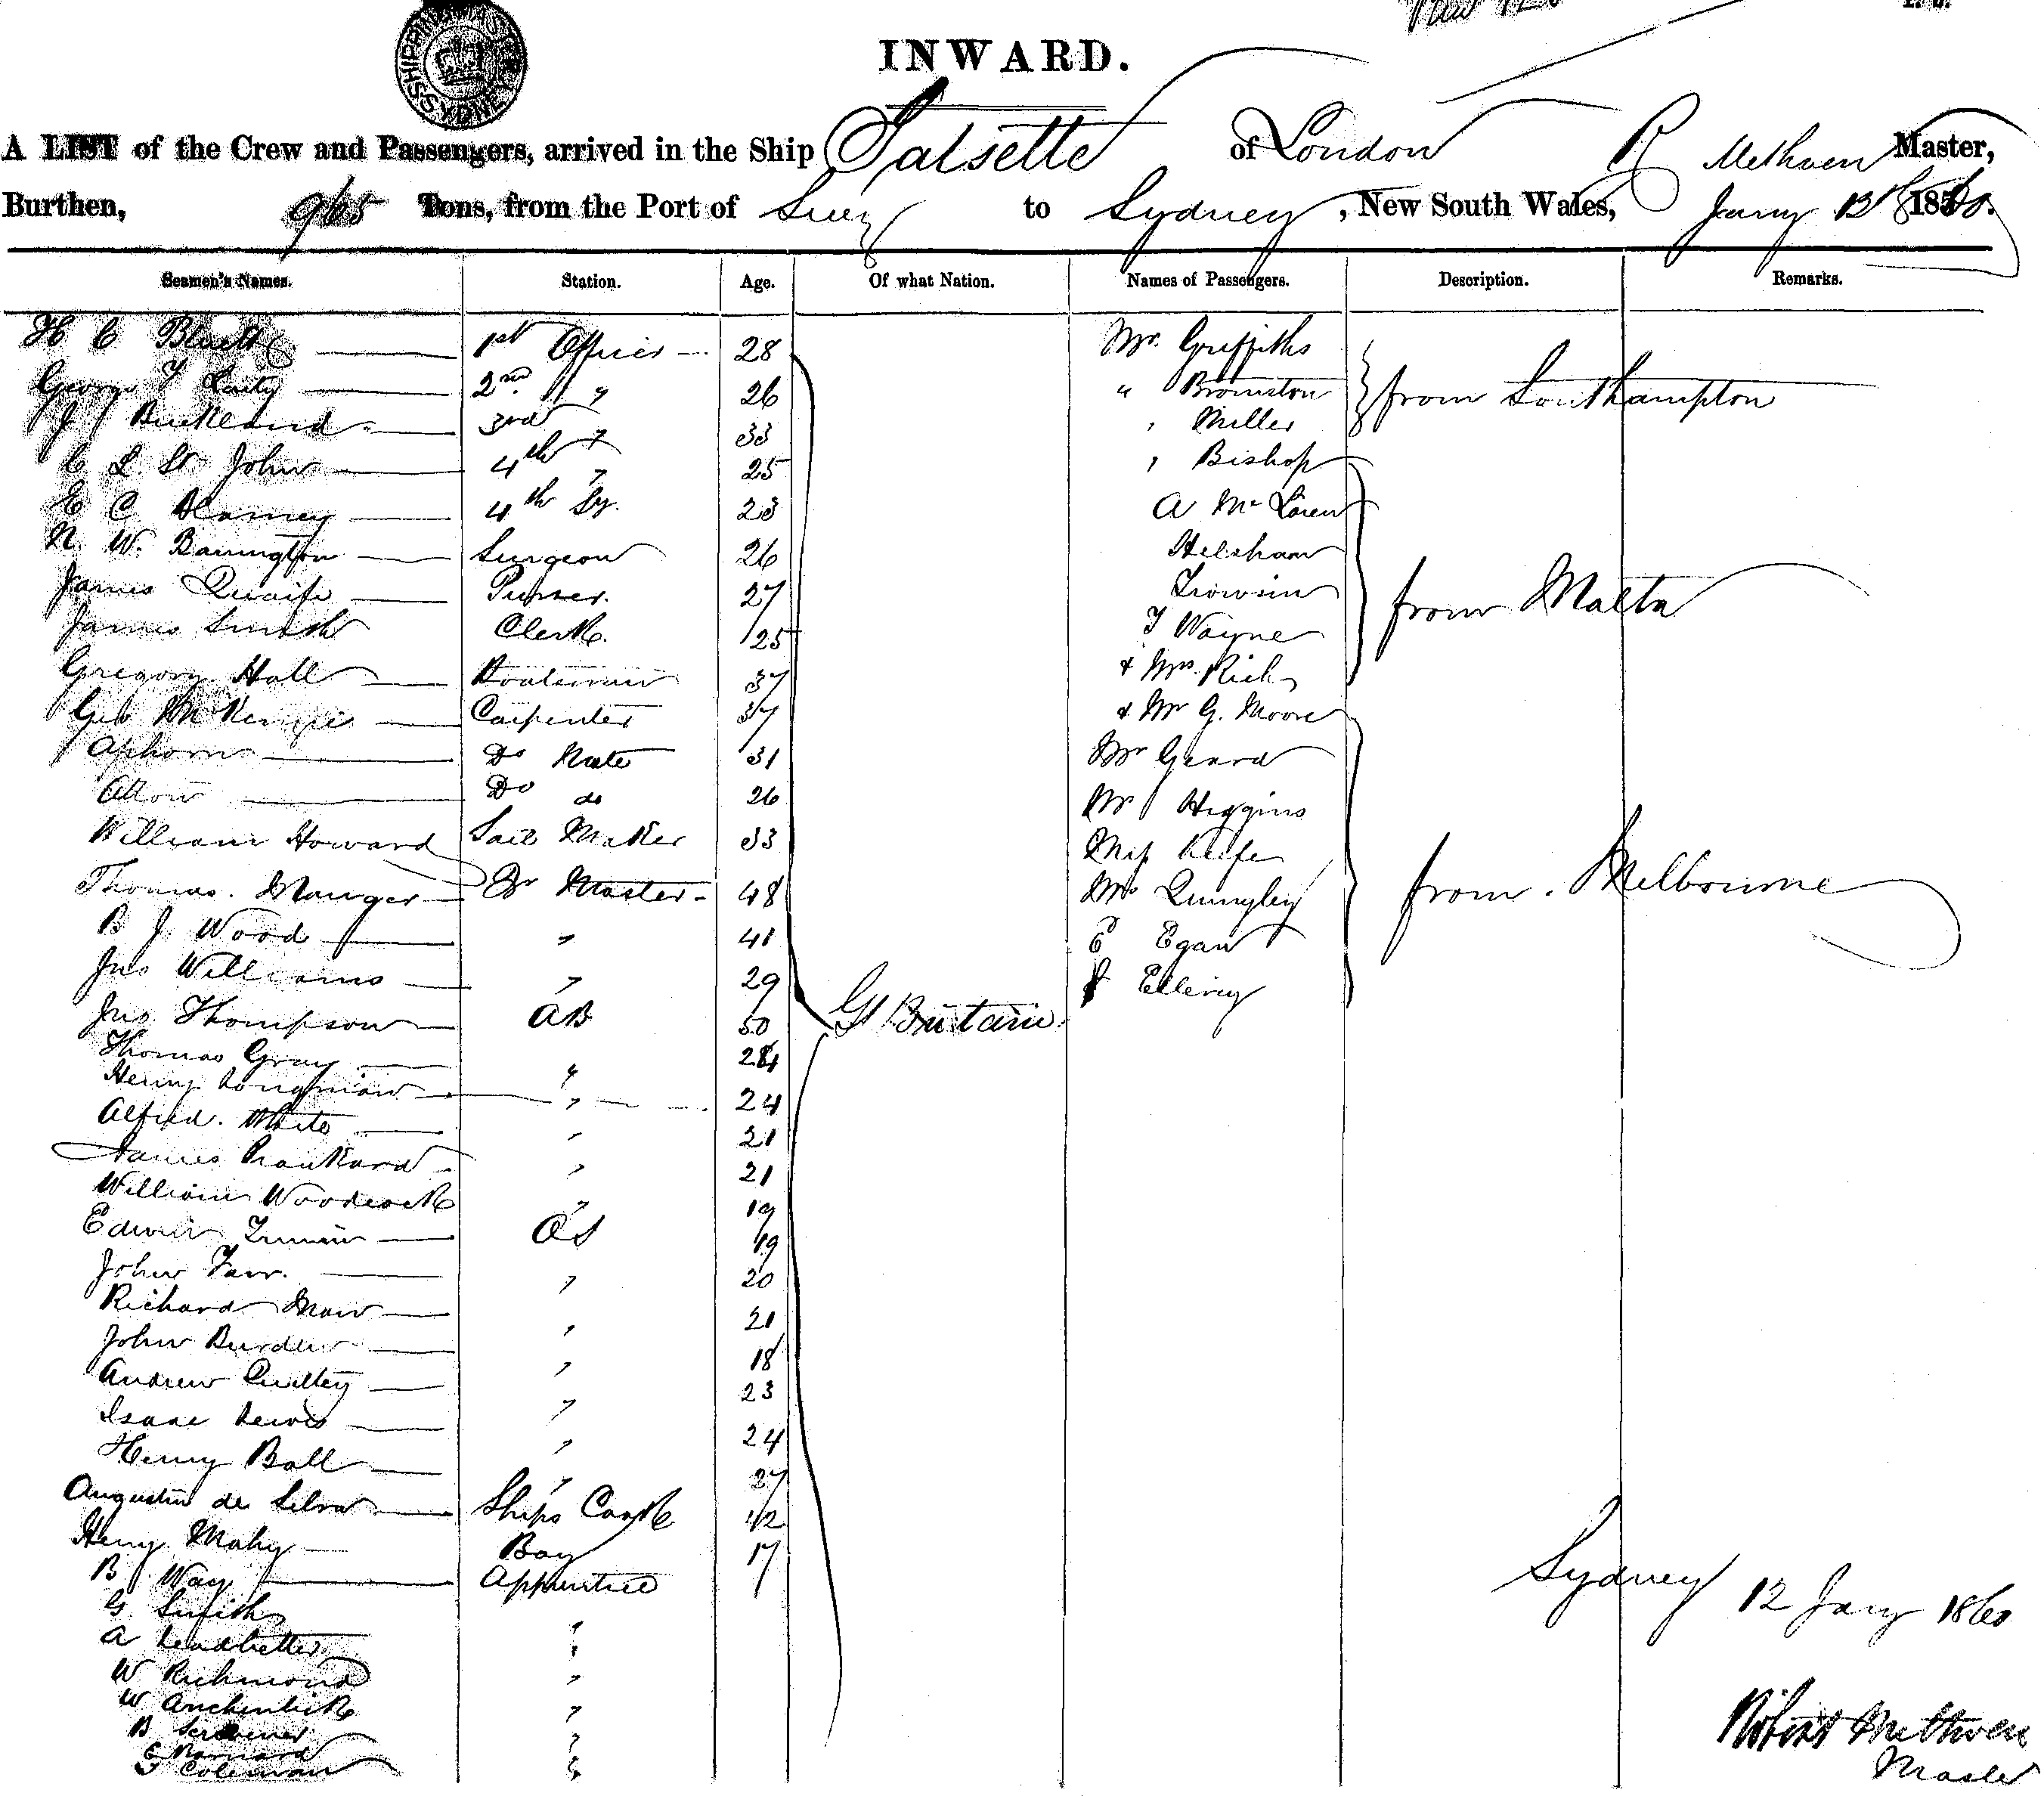 SHIPPING MASTER SYDNEY
INWARD.
A LIST of the Crew and Passengers, arrived in the Ship Salsette of London R Methven Master,
Burthen, 965 Tons, from the Port of Suez to Sydney, New South Wales, Jany 12 1860.
Seamen's Names. Station. Age. Of what Nation. Names of Passengers. Description. Remarks.
H C 1st Officer 28 Mr. Griffiths
George 2nd " 26 " Bromston from Southampton
J Buckland 3rd " 33 " Miller
C L St John 4th " 25 " Bishop
E C Blamey 4th 23 A Mc Laren
N. W. Barrington Surgeon 26 Helsham
James Quaife Purser. 27 from Malta
James Smith Clerk. 25 T Wayne
Gregory Hall Boatswain 37 & Mrs. Rich
Geo McKenzie Carpenter 37 & Mr G. Moore
Aphoon Do Mate 31 Mr Geard
Attow Do do 26 Mr Higgins
William Howard Sail Maker 33 Miss Keife
Thomas. Mauger Qr Master 48 Mrs Quingley from Melbourne
B J Wood " 41 E Egan
Jno Williams " 29 Ellery
Jno Thompson AB 50 Gt Britain
Thomas Gray " 24
Henry Longman " 24
Alfred. White " 21
James Prankard " 21
William Woodcock " 19
Edwin OS 19
John Farr. " 20
Richard Maw " 21
John Burden " 18
Andrew Quilley " 23
Isaac Lewis " 24
Henry Ball " 27
Augustin de Silva Ships Cook 42
Henry Mahy Boy 17
B Way Apprentice
G. Smith "
A Leadbetter "
W Richmond "
W "
B Scrivener "
C Barnard "
T Coleman "
Sydney 12 Jany 1860
Robert Methven
Master